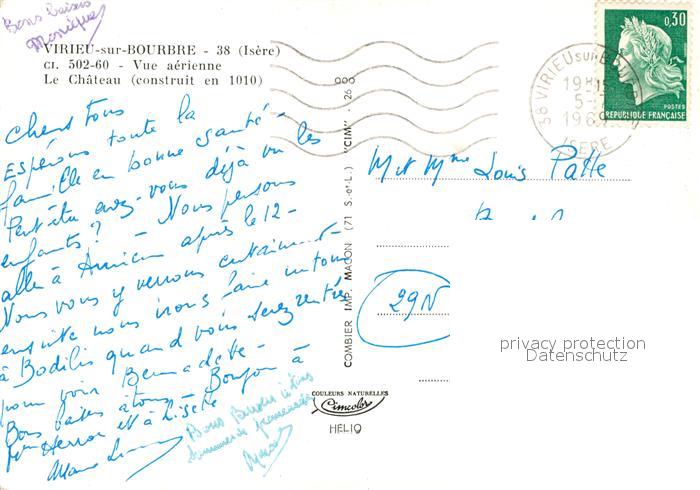 Bons baisers
Monique
VIRIEU-sur-BOURBRE - 38 (Isère)
CI. 502-60 - Vue aérienne
Le Château (construit en 1010)
Chers tous
Espérons toute la
famille en bonne santé -
Peut être avez-vous déjà vu les
enfants? - Nous pensons
aller à après le 12 -
Nous vous y verrons certainement -
ensuite nous irons faire un tour
à Bodilis quand vous serez rentrés
pour voir Bernadette -
Bons baisers à tous - Bonjour à
Mme et à Lisette
Marie
Bons Baisers à tous
COMBIER IMP. MACON (71 S.-et-L.) "CIM"
26 000
COULEURS NATURELLES
Cimcolor
HELIO
38 VIRIEU SUR
19H
5-
1969
ISERE
0,30
POSTES
REPUBLIQUE FRANÇAISE
M et Mme Louis Patte
29N
privacy protection
Datenschutz